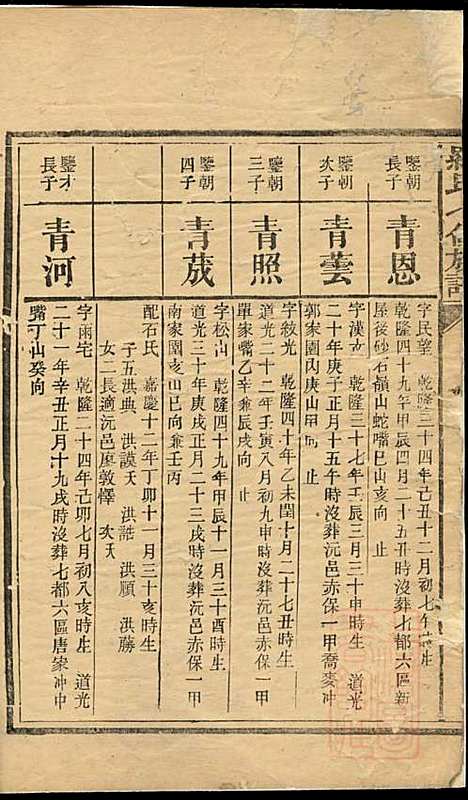 鑒朝長子
青恩
字民望 乾隆三十四年己丑十二月初七年時生
乾隆四十九年甲辰四月二十五丑時沒葬七都六區新
屋後砂石嶺山蛇嘴巳山亥向 止
鑒朝次子
青蕓
字漢 乾隆三十七年壬辰三月三十申時生 道光
二十年庚子正月十五午時沒葬沅邑赤保一甲喬麥冲
郭家園內庚山甲向 止
鑒朝三子
青照
字紋光 乾隆四十年乙未閏十月二十七丑時生
道光二十二年壬寅八月初九申時沒葬沅邑赤保一甲
單家嘴乙辛兼辰戌向 止
鑒朝四子
青荿
字松山 乾隆四十九年甲辰十一月三十酉時生
道光三十年庚戌正月二十三戌時沒葬沅邑赤保一甲
南家園亥山巳向兼壬丙
配石氏 嘉慶十二年丁卯十一月三十亥時生
子五洪典 洪謨夭 洪誥 洪順 洪勝
女二長適沅邑廖敦懌 次夭
鑒才長子
青河
字雨宅 乾隆二十四年己卯七月初八亥時生 道光
二十一年辛丑正月十九戌時沒葬七都六區唐家冲中
嘴丁山癸向